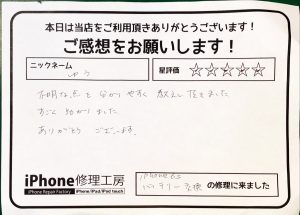 本日は当店をご利用頂きありがとうございます！
ご感想をお願いします！
ニックネーム
ゆう
星評価 ☆☆☆☆☆
不明な点を分かりやすく教えて頂きました
すごく助かりました
ありがとうございます
iPhone修理工房
iPhone Repair Factory iPhone/iPad/iPod touch
iPhone6s
バッテリー交換
の修理に来ました